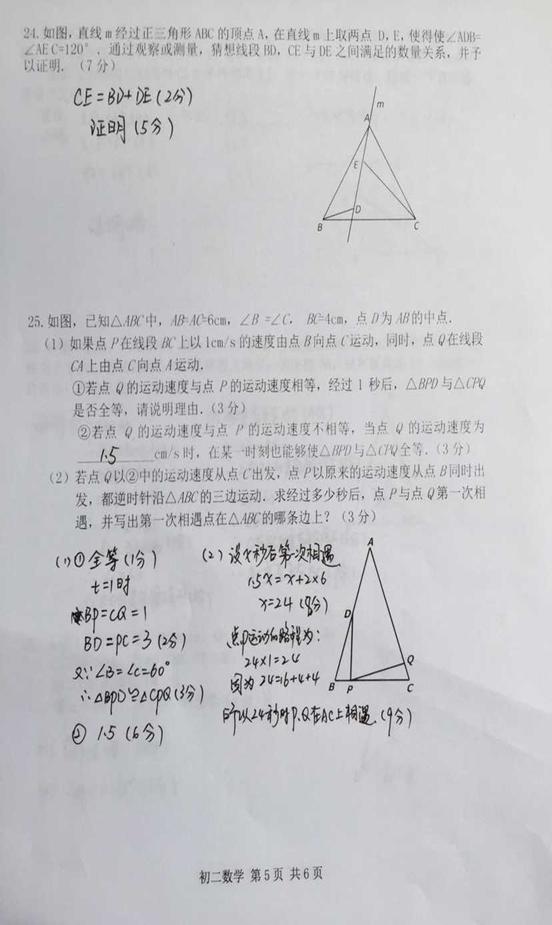 24. 如图, 直线 m 经过正三角形 ABC 的顶点 A, 在直线 m 上取两点 D, E, 使得使∠ADB=
∠AEC=120°. 通过观察或测量, 猜想线段 BD, CE 与 DE 之间满足的数量关系, 并予
以证明. (7分)
CE=BD+DE (2分)
证明 (5分)
m
A
E
D
B
C
25. 如图, 已知△ABC中, AB=AC=6cm, ∠B =∠C, BC=4cm, 点 D 为 AB 的中点.
(1) 如果点 P 在线段 BC 上以 1cm/s 的速度由点 B 向点 C 运动, 同时, 点 Q 在线段
CA 上由点 C 向点 A 运动.
①若点 Q 的运动速度与点 P 的运动速度相等, 经过 1 秒后, △BPD 与△CPQ
是否全等, 请说明理由. (3分)
②若点 Q 的运动速度与点 P 的运动速度不相等, 当点 Q 的运动速度为
1.5 cm/s 时, 在某一时刻也能够使△BPD 与△CPQ 全等. (3分)
(2) 若点 Q 以②中的运动速度从点 C 出发, 点 P 以原来的运动速度从点 B 同时出
发, 都逆时针沿△ABC 的三边运动. 求经过多少秒后, 点 P 与点 Q 第一次相
遇, 并写出第一次相遇点在△ABC 的哪条边上? (3分)
(1) ① 全等 (1分)
t=1时
BP=CQ=1
BD=PC=3 (2分)
又∵∠B=∠C=60°
∴△BPD≌△CPQ (3分)
② 1.5 (6分)
(2) 设x秒后第一次相遇
1.5x=x+2×6
x=24 (8分)
点P运动的路程为:
24×1=24
因为 24=16+4+4
所以24秒时P.Q在AC上相遇. (9分)
A
D
Q
B
P
C
初二数学 第5页 共6页